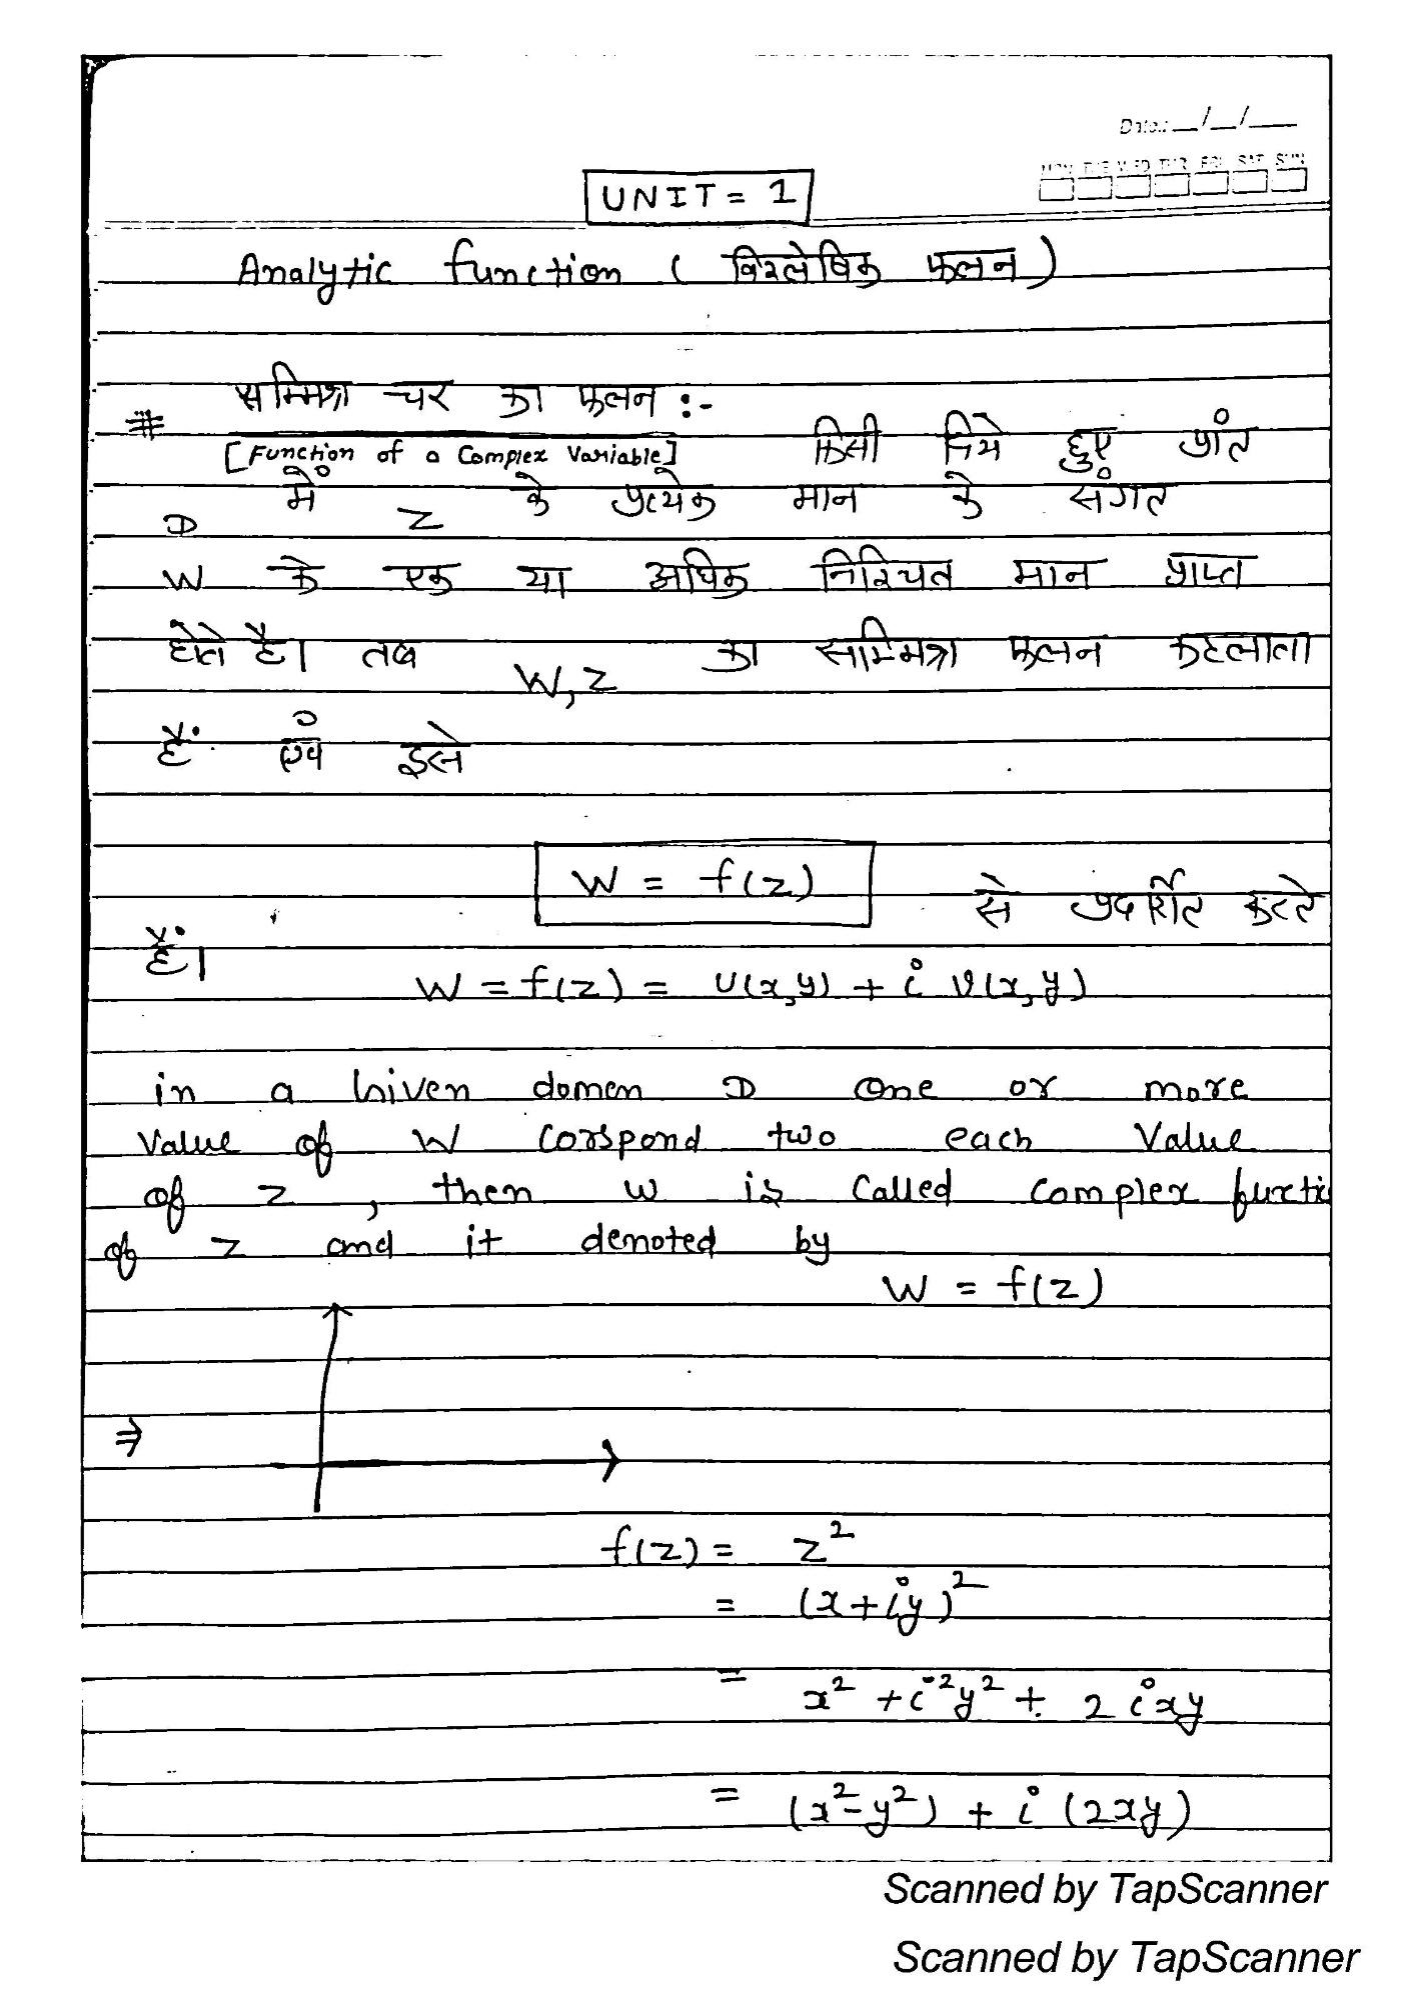 Date: __/__/___
MON TUE WED THR FRI SAT SUN
UNIT = 1
Analytic function ( विश्लेषिक फलन )
# सम्मिश्र चर का फलन :-
[Function of a Complex Variable] किसी दिये हुए प्रांत
D में Z के प्रत्येक मान के संगत
W के एक या अधिक निश्चित मान प्राप्त
होते है। तब W, Z का सम्मिश्र फलन कहलाता
हैं एवं इसे
W = f(z) से प्रदर्शित करते
हैं।
W = f(z) = U(x,y) + i V(x,y)
in a Given domen D One or more
Value of W Corspond two each Value
of z , then w is Called Complex functi
of z and it denoted by
W = f(z)
⇒
f(z) = z²
= (x+iy)²
= x² + i²y² + 2 ixy
= (x²-y²) + i (2xy)
Scanned by TapScanner
Scanned by TapScanner